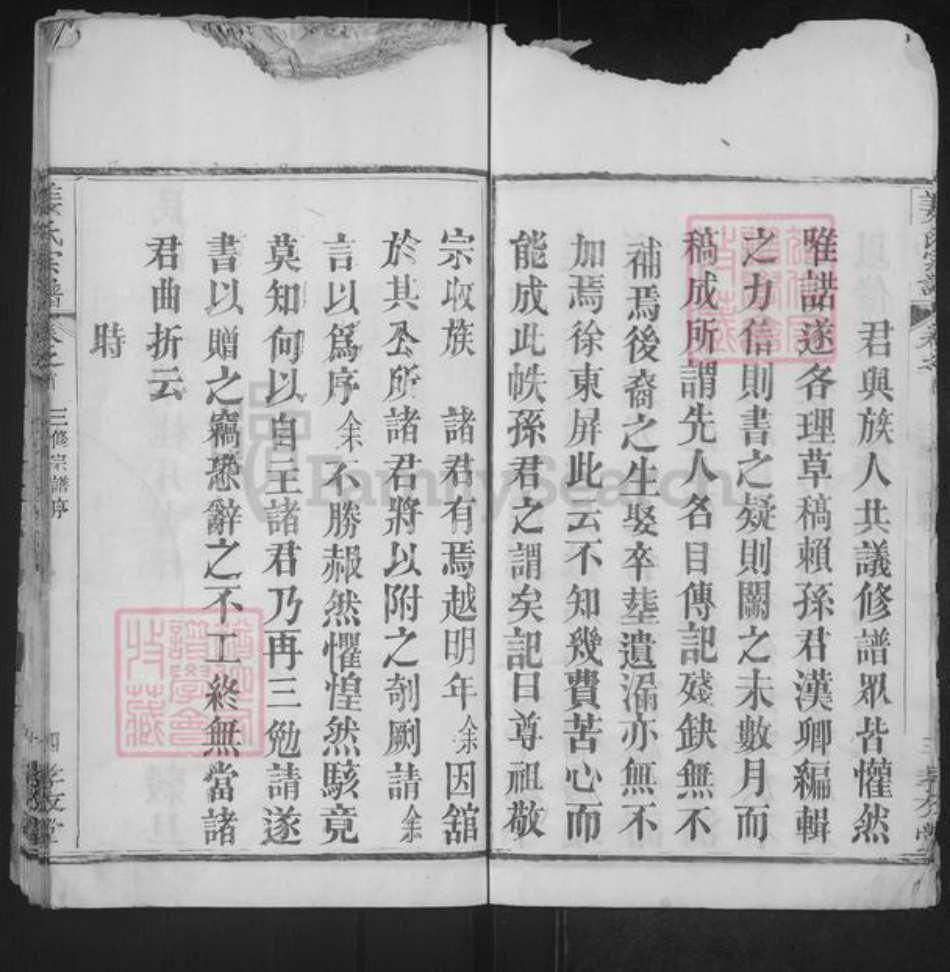 君與族人共議修譜眾皆懽然
唯諾遂各理草稿賴孫君漢卿編輯
之力信則書之疑則闕之未數月而
稿成所謂先人名目傳記殘缺無不
補焉後裔之生娶卒塟遺漏亦無不
加焉徐東屏此云不知幾費苦心而
能成此帙孫君之謂矣記曰尊祖敬
宗收族 諸君有焉越明年余因舘
於其公所諸君將以附之剞劂請余
言以爲序余不勝赧然懼惶然駭竟
莫知何以自主諸君乃再三勉請遂
書以贈之竊恐辭之不工終無當諸
君曲折云
時
姜氏宗譜 卷之首 三修宗譜序 四
FamilySearch
譜學會
收藏